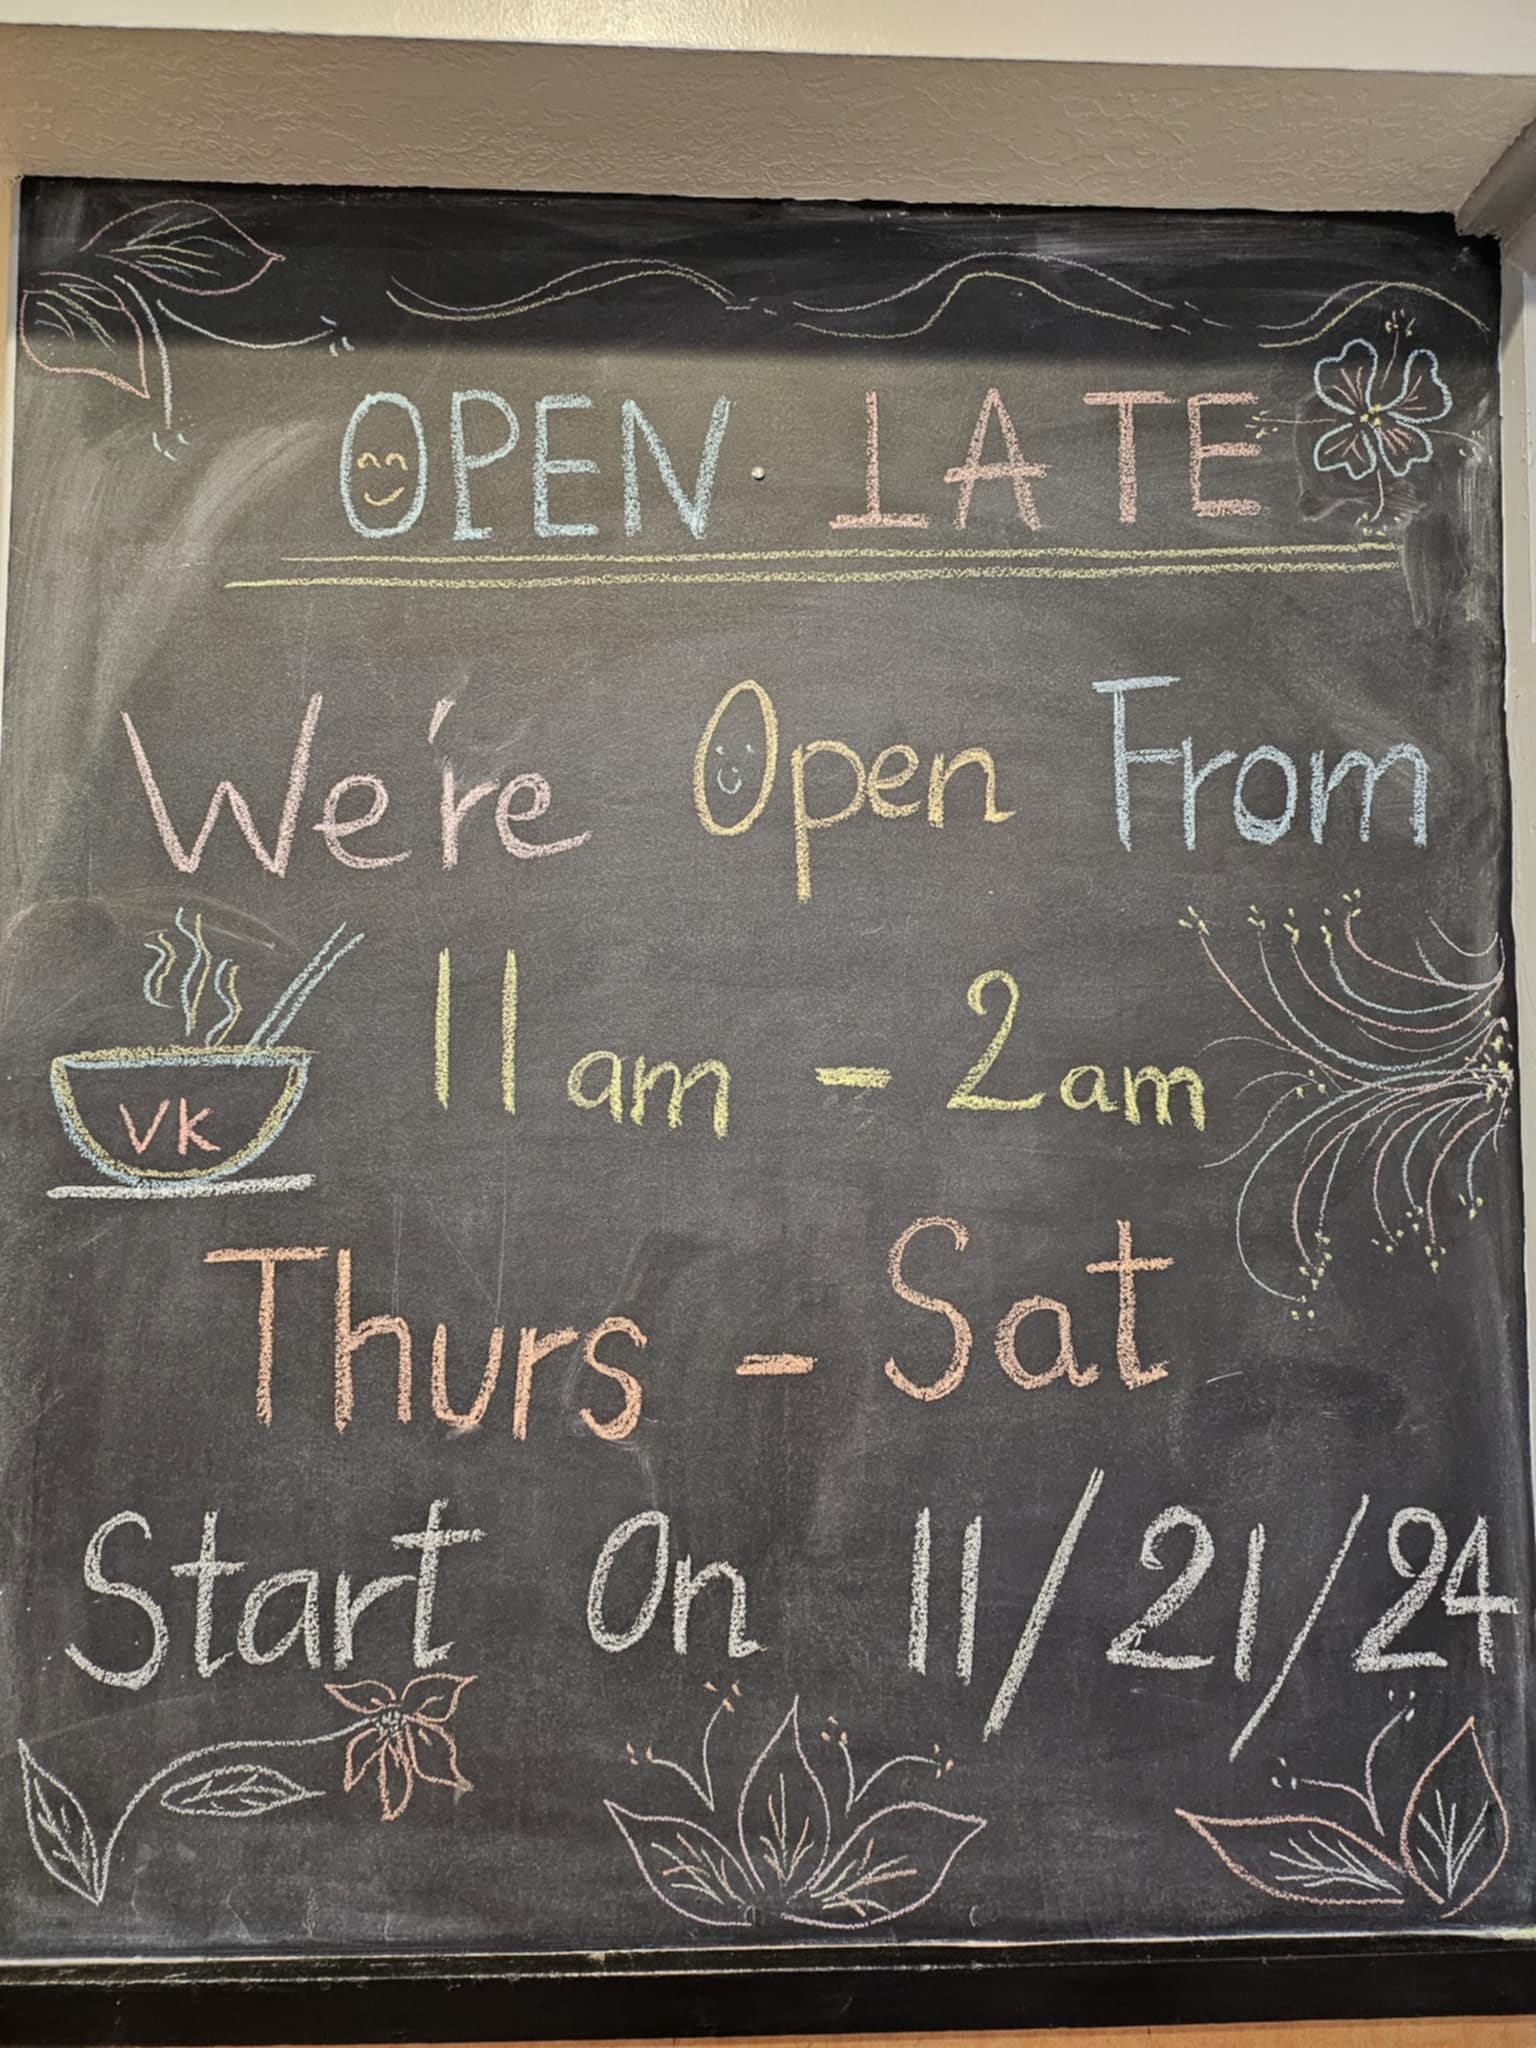 OPEN LATE
We're Open From
11am - 2am
VK
Thurs - Sat
Start On 11/21/24